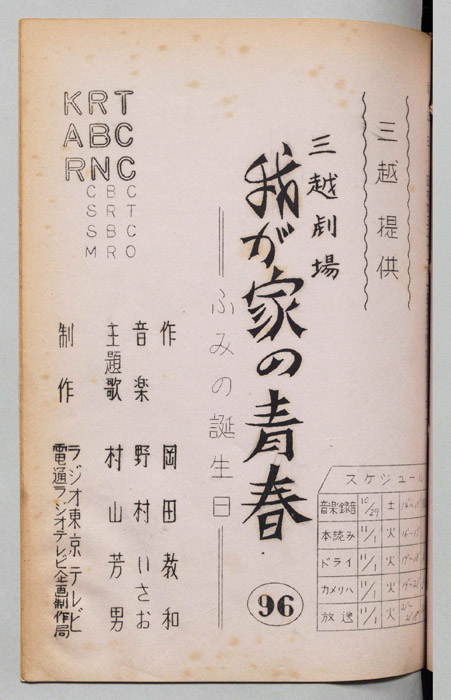 三越提供
三越劇場
我が家の青春
ふみの誕生日
96
KRT
ABC
RNC
CBC
SRT
SBC
MRO
作 岡田教和
音楽 野村いさお
主題歌 村山芳男
制作 ラジオ東京テレビ
電通ラジオテレビ企画制作局
スケジュール
音楽録音 10/29 土
本読み 11/1 火
ドライ 11/1 火
カメリハ 11/1 火
放送 11/1 火